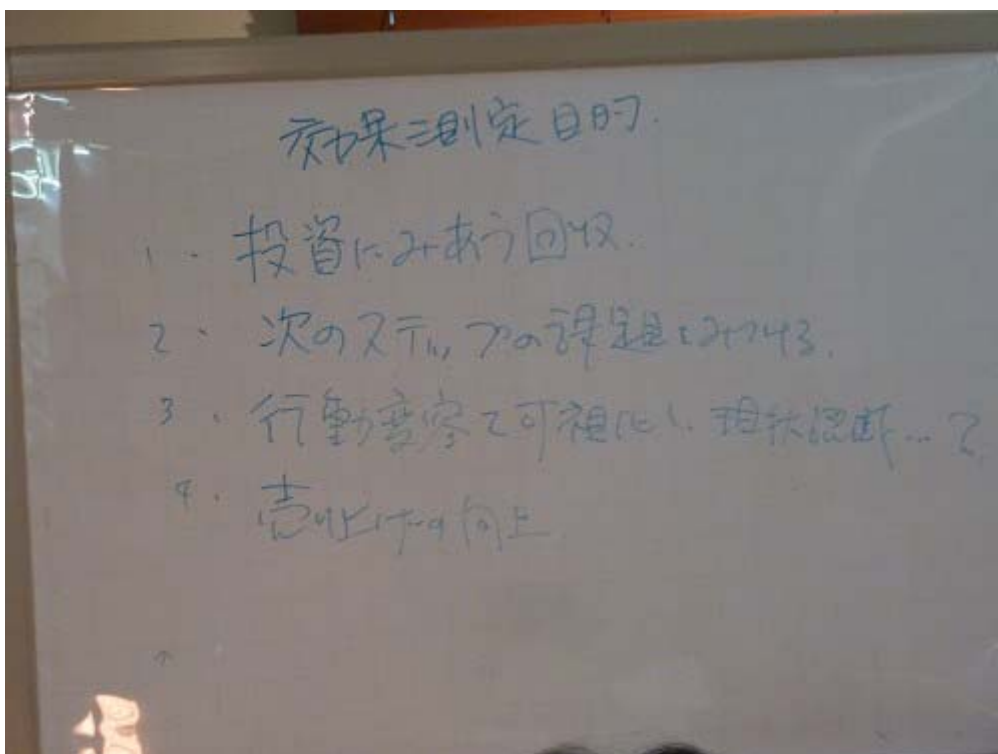 効果測定目的.
1. 投資にみあう回収.
2. 次のステップの課題をみつける.
3. 行動変容を可視化し、現状認識...?
4. 売り上げの向上